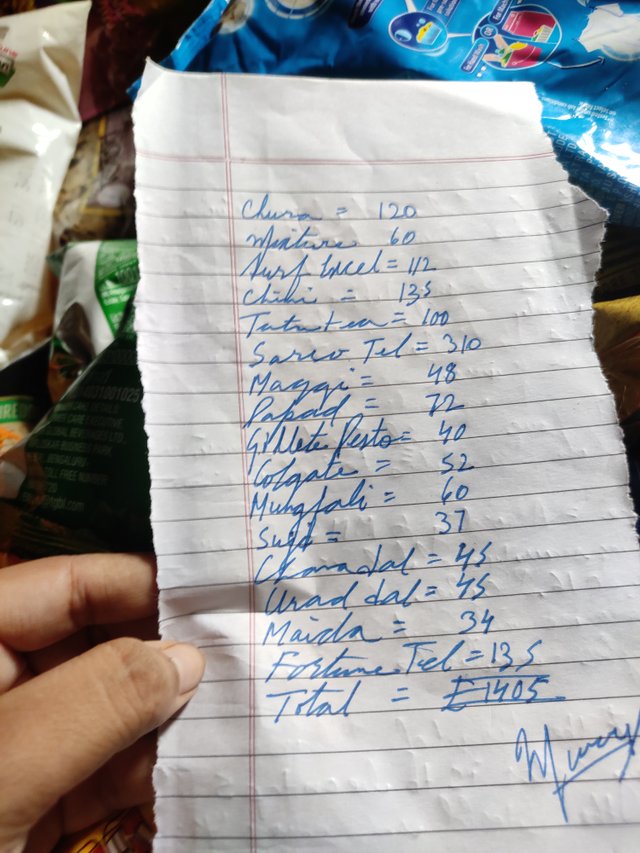 Chura = 120
Mixture 60
Surf Excel = 112
Chini = 135
Tata tea = 100
Sarso Tel = 310
Maggi = 48
Papad = 72
Gillete Presto = 40
Colgate = 52
Mungfali = 60
Suji = 37
Chana dal = 45
Urad dal = 45
Maida = 34
Fortune Tel = 135
Total = 1405
BEVERAGES LTD.
BENGALURU
TOLL FREE NUMBER